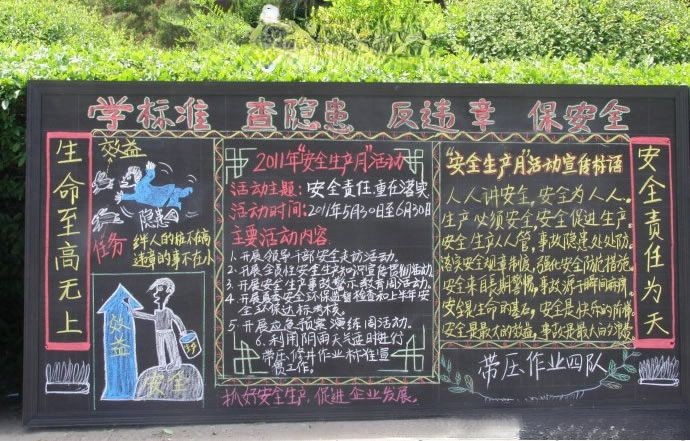 学标准 查隐患 反违章 保安全
生命至高无上
效益
隐患
任务
绊人的桩不在高
违章的事不在小
效益
安全
2011年“安全生产月”活动
活动主题:安全责任重在落实
活动时间:2011年5月30日至6月30日
主要活动内容:
1.开展领导干部安全走访活动。
2.开展全员性安全生产知识宣传惯制活动
3.开展安全生产事故警示教育周活动。
4.开展夏季安全环保监督检查和上半年安
全环保达标考核。
5.开展应急预案演练周活动。
6.利用阴雨天气适时进行
带压修井作业标准宣
贯工作。
抓好安全生产,促进企业发展。
“安全生产月”活动宣传标语
人人讲安全,安全为人人。
生产必须安全,安全促进生产。
安全生产人人管,事故隐患处处防。
落实安全规章制度,强化安全防范措施。
安全来自长期警惕,事故源于瞬间麻痹。
安全是生命的基石,安全是快乐的阶梯。
安全是最大的效益,事故是最大的浪费。
带压作业四队
安全责任为天